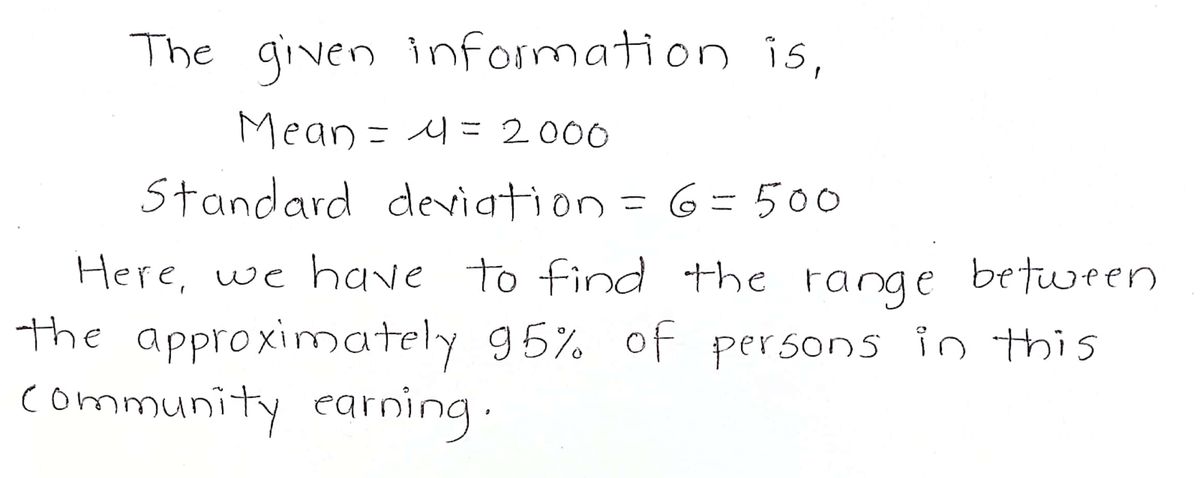 The given information is,
Mean = μ = 2000
Standard deviation = 6 = 500
Here, we have to find the range between
the approximately 95% of persons in this
community earning.